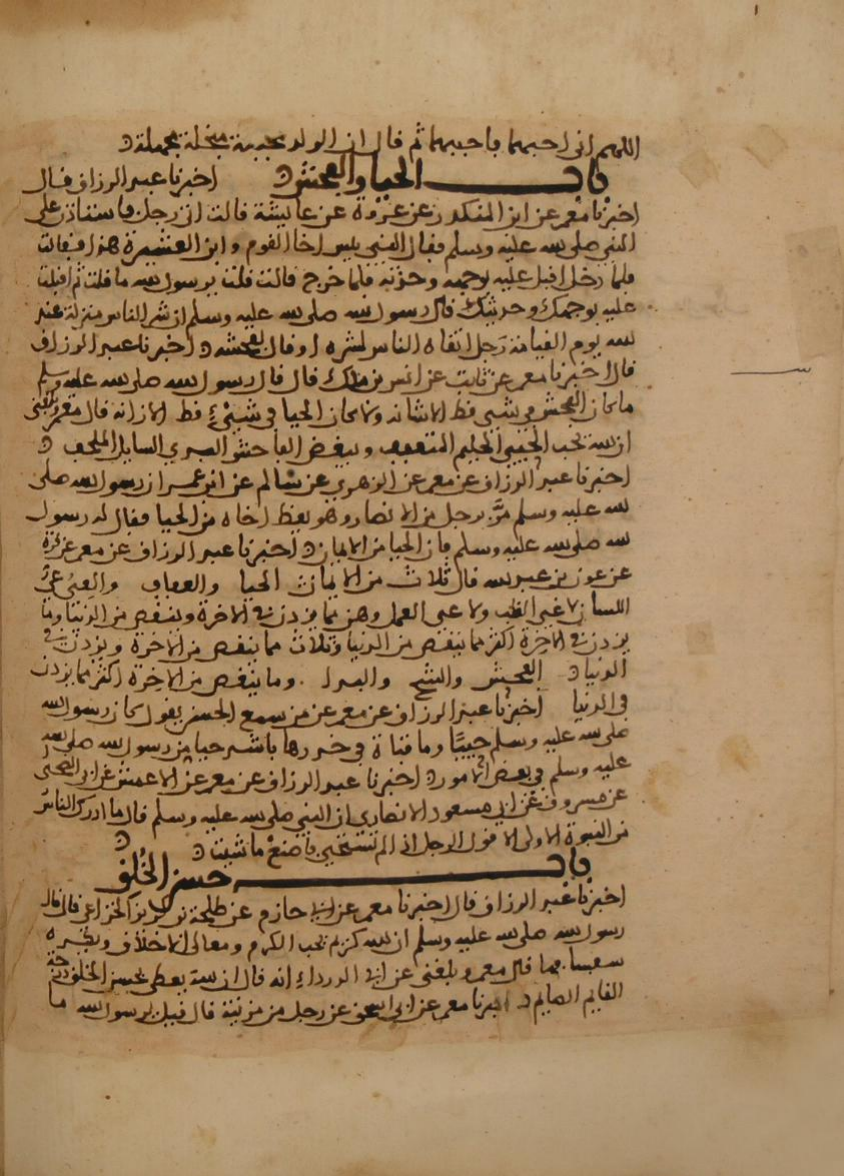 اللهم اني احبهما فاحبهما ثم قال ان الولد مجبنة مبخلة مجهلة
باب الحيا والفحش اخبرنا عبد الرزاق قال
اخبرنا معمر عن ابن المنكدر عن عروة عن عايشة قالت اتى رجل فاستاذن على
النبي صلى الله عليه وسلم فقال النبي بيس اخا القوم وابن العشيرة هذا قالت
فلما دخل اقبل عليه بوجهه وحدثه فلما خرج قالت قلت يرسول الله ما قلت ثم اقبلت
عليه بوجهك وحديثك قال رسول الله صلى الله عليه وسلم ان شر الناس منزلة عند
الله يوم القيامة رجل اتقاه الناس لشره او قال لفحشه اخبرنا عبد الرزاق
قال اخبرنا معمر عن ثابت عن انس بن ملك قال قال رسول الله صلى الله عليه وسلم
ما كان الفحش في شي قط الا شانه ولا كان الحيا في شيء قط الا زانه قال معمر بلغني
ان الله يحب الحيي الحليم المتعفف ويبغض الفاحش البذي السايل الملحف
اخبرنا عبد الرزاق عن معمر عن الزهري عن سالم عن ابن عمر ان رسول الله صلى
الله عليه وسلم مر برجل من الانصار وهو يعظ اخاه من الحيا فقال له رسول
الله صلى الله عليه وسلم فان الحيا من الايمان اخبرنا عبد الرزاق عن معمر عن قتادة
عن عون بن عبد الله قال ثلاث من الايمان الحيا والعفاف والعي عي
اللسان لا عي القلب ولا عي العمل وهن مما يزدن في الاخرة وينقصن من الدنيا وما
يزدن في الاخرة اكثر مما ينقصن من الدنيا وثلاث مما ينقصن من الاخرة ويزدن في
الدنيا الفحش والشح والبذا وما ينقصن من الاخرة اكثر مما يزدن
في الدنيا اخبرنا عبد الرزاق عن معمر عن من سمع الحسن يقول كان رسول الله
صلى الله عليه وسلم حييا وما فتاة في خدرها باشد حيا من رسول الله صلى الله
عليه وسلم في بعض الامور اخبرنا عبد الرزاق عن معمر عن الاعمش عن ابي الضحى
عن مسروق عن ابي مسعود الانصاري ان النبي صلى الله عليه وسلم قال ما ادرك الناس
من النبوة الاولى الا قول الرجل اذا لم تستحيي فاصنع ما شيت
باب حسن الخلق
اخبرنا عبد الرزاق قال اخبرنا معمر عن ابي حازم عن طلحة بن كريز الخزاعي قال قال
رسول الله صلى الله عليه وسلم ان الله كريم يحب الكرم ومعالي الاخلاق ويكره
سفسافها قال معمر وبلغني عن ابي الدرداء انه قال ان الله يعطي بحسن الخلق درجة
القايم الصايم اخبرنا معمر عن ابي اسحق عن رجل من مزينة قال قيل يرسول الله ما